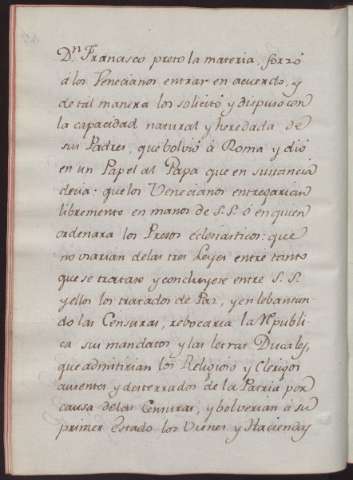 Dn. Francisco preto la materia, forzó
a los Venecianos entrar en acuerdo, y
de tal manera los solicitó y dispuso con
la capacidad natural y heredada de
sus Padres, que bolvió à Roma y dió
en un Papel al Papa que en sustancia
decia: que los Venecianos entregarian
libremente en manos de S.S. ó en quien
ordenara los Presos eclesiásticos: que
no usarian de las tres Leyes entre tanto
que se tratase y concluyese entre S.S.
y ellos los tratados de Paz, y en lebantan-
do las Censuras, rebocaria la Republi
ca sus mandatos y las letras Ducales,
que admitirian los Religiosos y Clerigos
ausentes y desterrados de la Patria por
causa de las Censuras, y bolverian à su
primer estado los Vienes y Haciendas